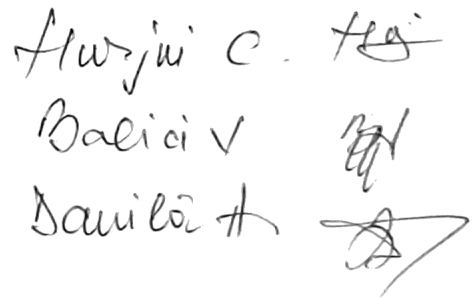 Hurjui C.
Balici V
Danilă A